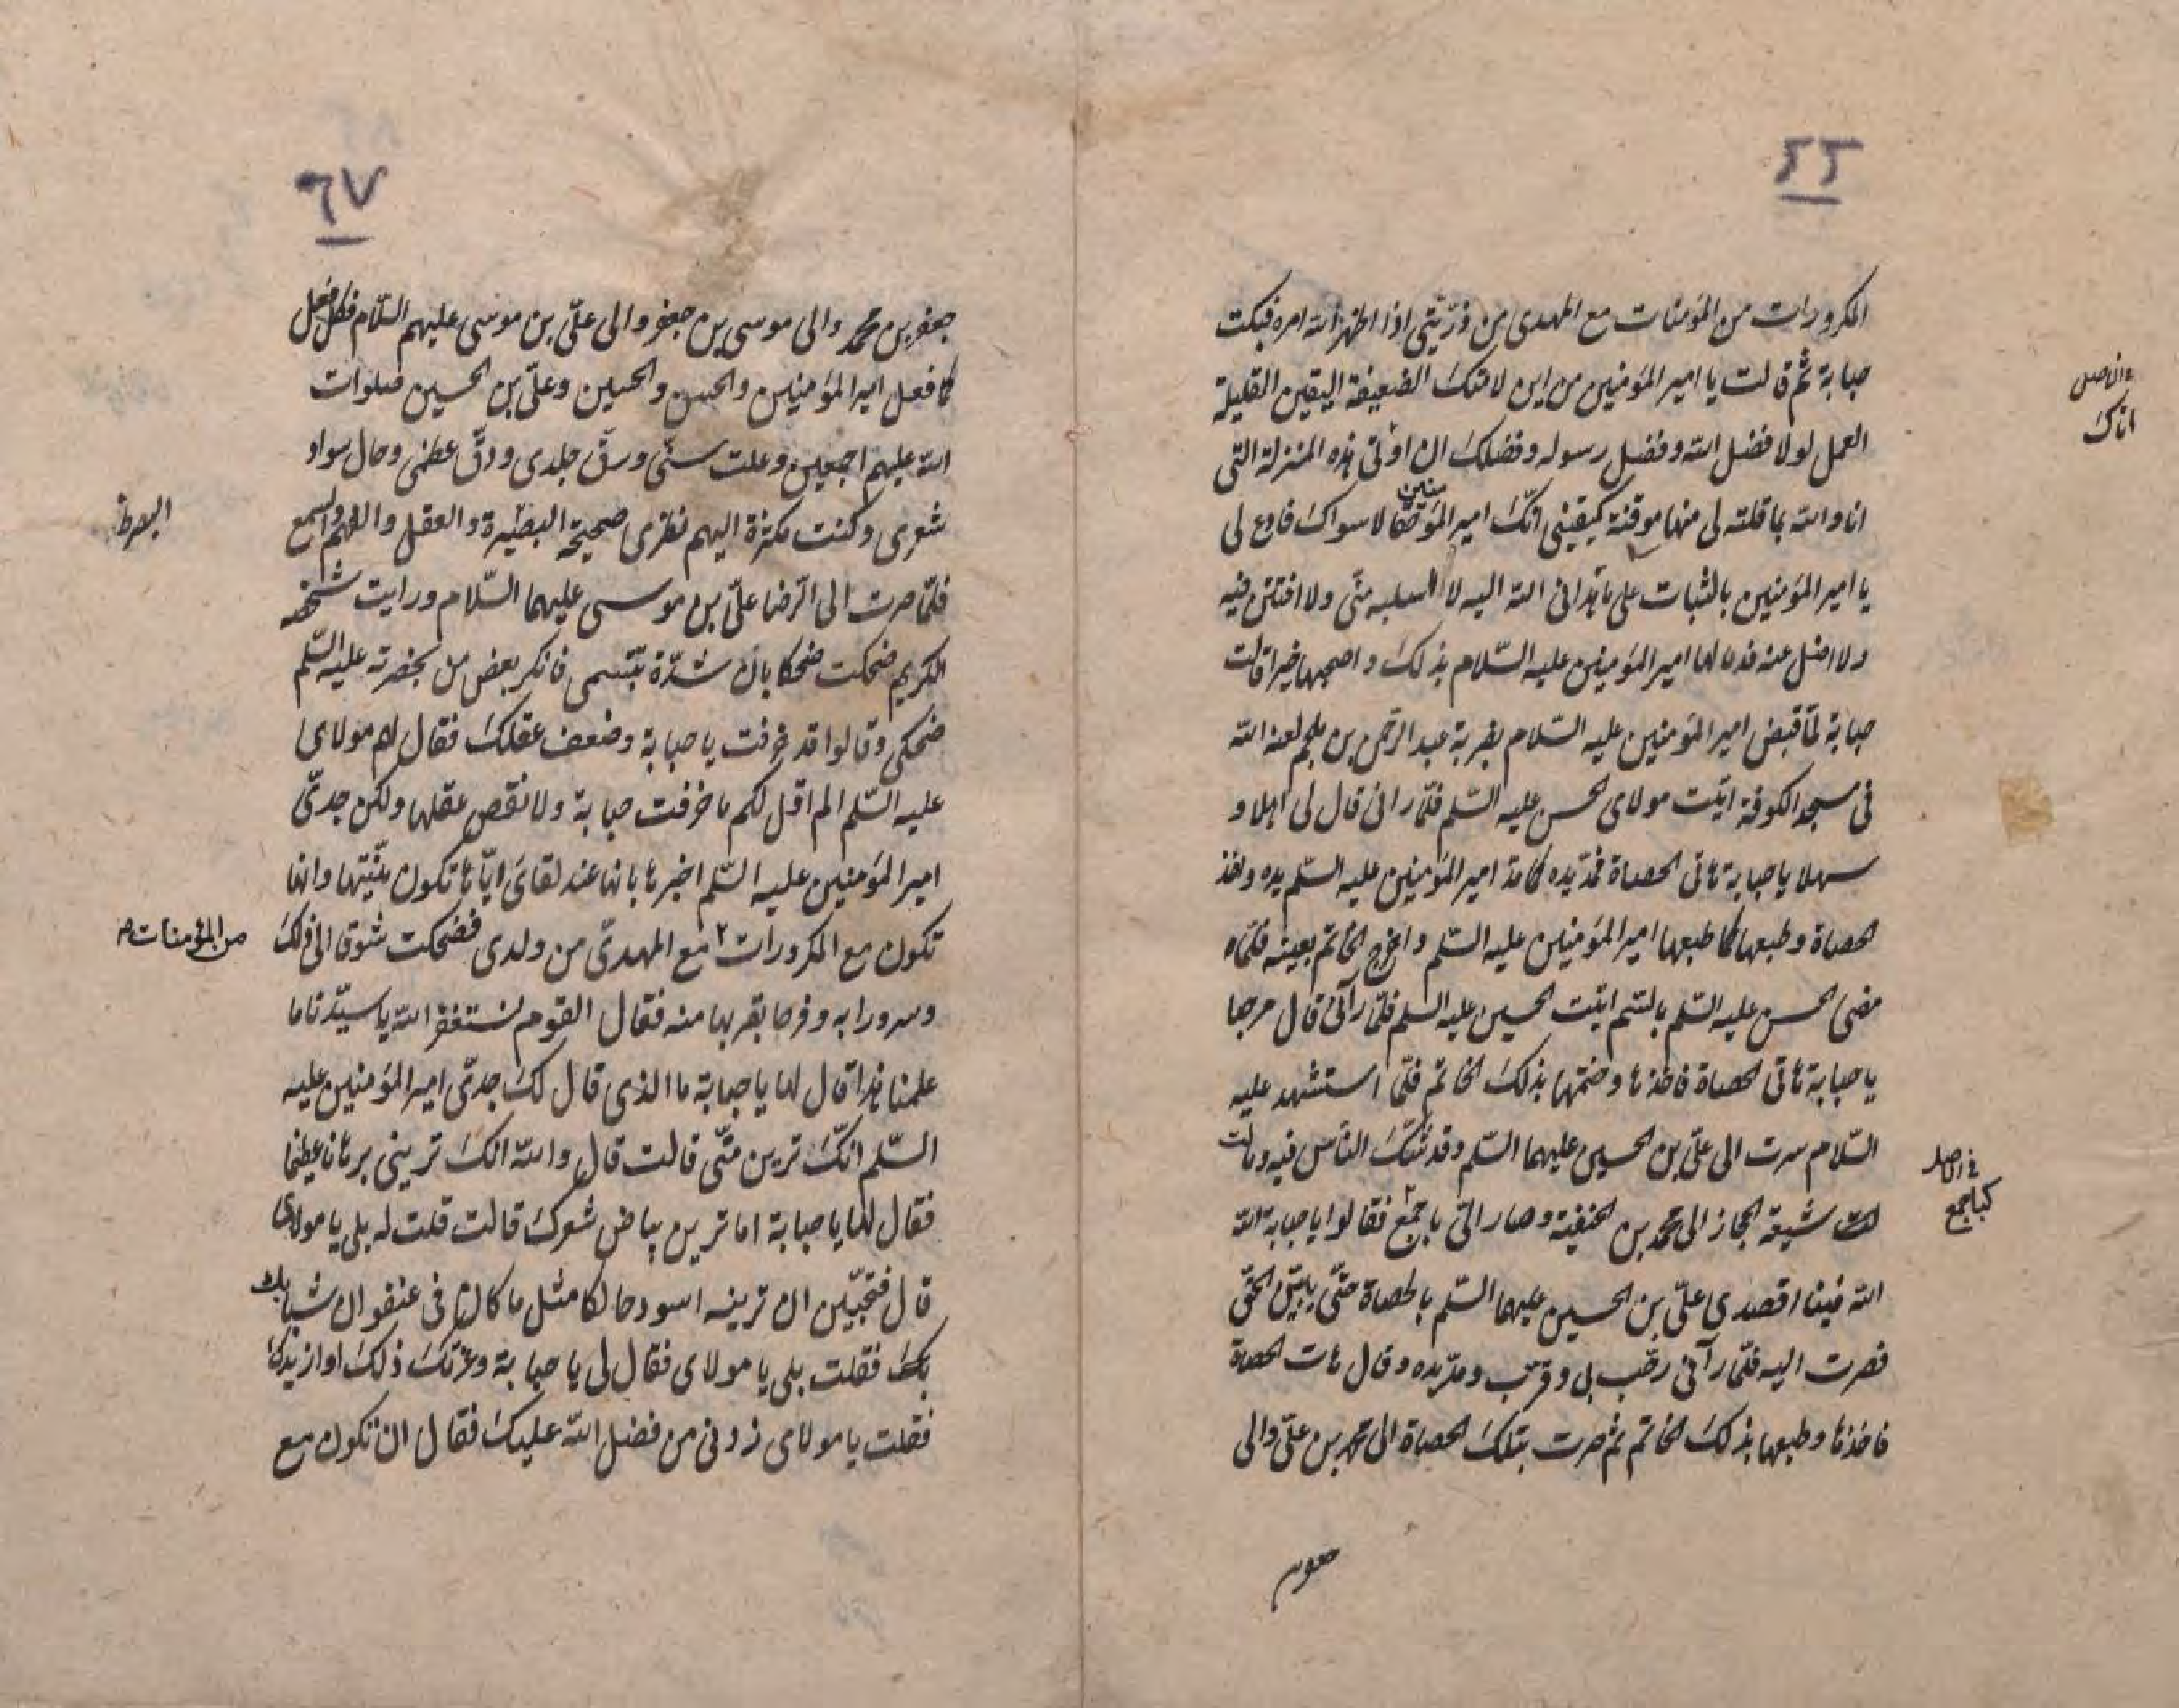 ٦٦
المكرورات من المؤمنات مع المهدى من ذرّيتى اذا اظهر الله امره فبكت
حبابة ثم قالت يا امير المؤمنين من اين لامتك الضعيفة اليقين القليلة
العمل لولا فضل الله وفضل رسوله وفضلك ان اوتى هذه المنزلة التى
انا والله بما قلته لى منها موقنة كيقينى انّك امير المؤمنين حقا لا سواك فادع لى
يا امير المؤمنين بالثبات على ما هدانى الله اليه لا اسلبه منّى ولا افتتن فيه
ولا اضل عنه فدعا لها امير المؤمنين عليه السّلام بذلك واصبحها خيرا قالت
حبابة لمّا قبض امير المؤمنين عليه السّلام بضربة عبد الرحمن بن ملجم لعنه الله
فى مسجد الكوفة اتيت مولاى الحسن عليه السّلم فلمّا رانى قال لى اهلا و
سهلا يا حبابة هاتى الحصاة فمدّ يده كما مد امير المؤمنين عليه السّلم يده واخذ
الحصاة وطبعها كما طبعها امير المؤمنين عليه السّلم واخرج الخاتم بعينه فلمّا
مضى الحسن عليه السّلم بالسّم اتيت الحسين عليه السلم فلمّا رآنى قال مرحبا
يا حبابة هاتى الحصاة فاخذها وختمها بذلك الخاتم فلمّا استشهد عليه
السّلام سرت الى علىّ بن الحسين عليهما السّلم وقد شكّ الناس فيه ومالت
شيعة الحجاز الى محمد بن الحنفية وصار الىّ جمع فقالوا يا حبابة الله
الله فينا اقصدى علىّ بن الحسين عليهما السّلم بالحصاة حتّى يتبيّن الحقّ
فصرت اليه فلمّا رآنى رحّب بى وقرّب ومدّ يده وقال هات الحصاة
فاخذها وطبعها بذلك الخاتم ثم صرت بتلك الحصاة الى محمد بن علىّ والى
اناك
فى الاصل
جعفر
٦٧
جعفر بن محمد والى موسى بن جعفر والى علىّ بن موسى عليهم السّلام فكل فعل
كما فعل امير المؤمنين والحسن والحسين وعلىّ بن الحسين صلوات
الله عليهم اجمعين وعلت سنّى ورقّ جلدى ودقّ عظمى وحال سواد
شعرى وكنت مكثرة اليهم نظرى صحيحة البصيرة والعقل والفهم والسمع
فلمّا صرت الى الرّضا علىّ بن موسى عليهما السّلام ورايت شخصه
الكريم ضحكت ضحكا بان شدّة تبسّمى فانكر بعض من بحضرته عليه السّلم
ضحكى وقالوا قد خرفت يا حبابة وضعف عقلك فقال لهم مولاى
عليه السّلم الم اقل لكم ما خرفت حبابة ولا نقص عقلها ولكن جدىّ
امير المؤمنين عليه السّلم اخبرها بانها عند لقائ ايّاها تكون منيّتها وانها
تكون مع المكرورات مع المهدىّ من ولدى فضحكت شوقا الى ذلك
من المؤمنات
وسرورا به وفرحا بقربها منه فقال القوم نستغفر الله يا سيّدنا ما
علمنا هذا قال لها يا حبابة ما الذى قال لك جدىّ امير المؤمنين عليه
السّلم انّك ترين منّى قالت قال والله انك ترينى برهانا عظيما
فقال لها يا حبابة اما ترين بياض شعرك قالت قلت له بلى يا مولاى
قال فتحبّين ان ترينه اسود حالكا مثل ما كان فى عنفوان شبابك
فقلت بلى يا مولاى فقال لى يا حبابة ويجزيك ذلك او ازيدك
فقلت يا مولاى زدنى من فضل الله عليك فقال ان تكون مع